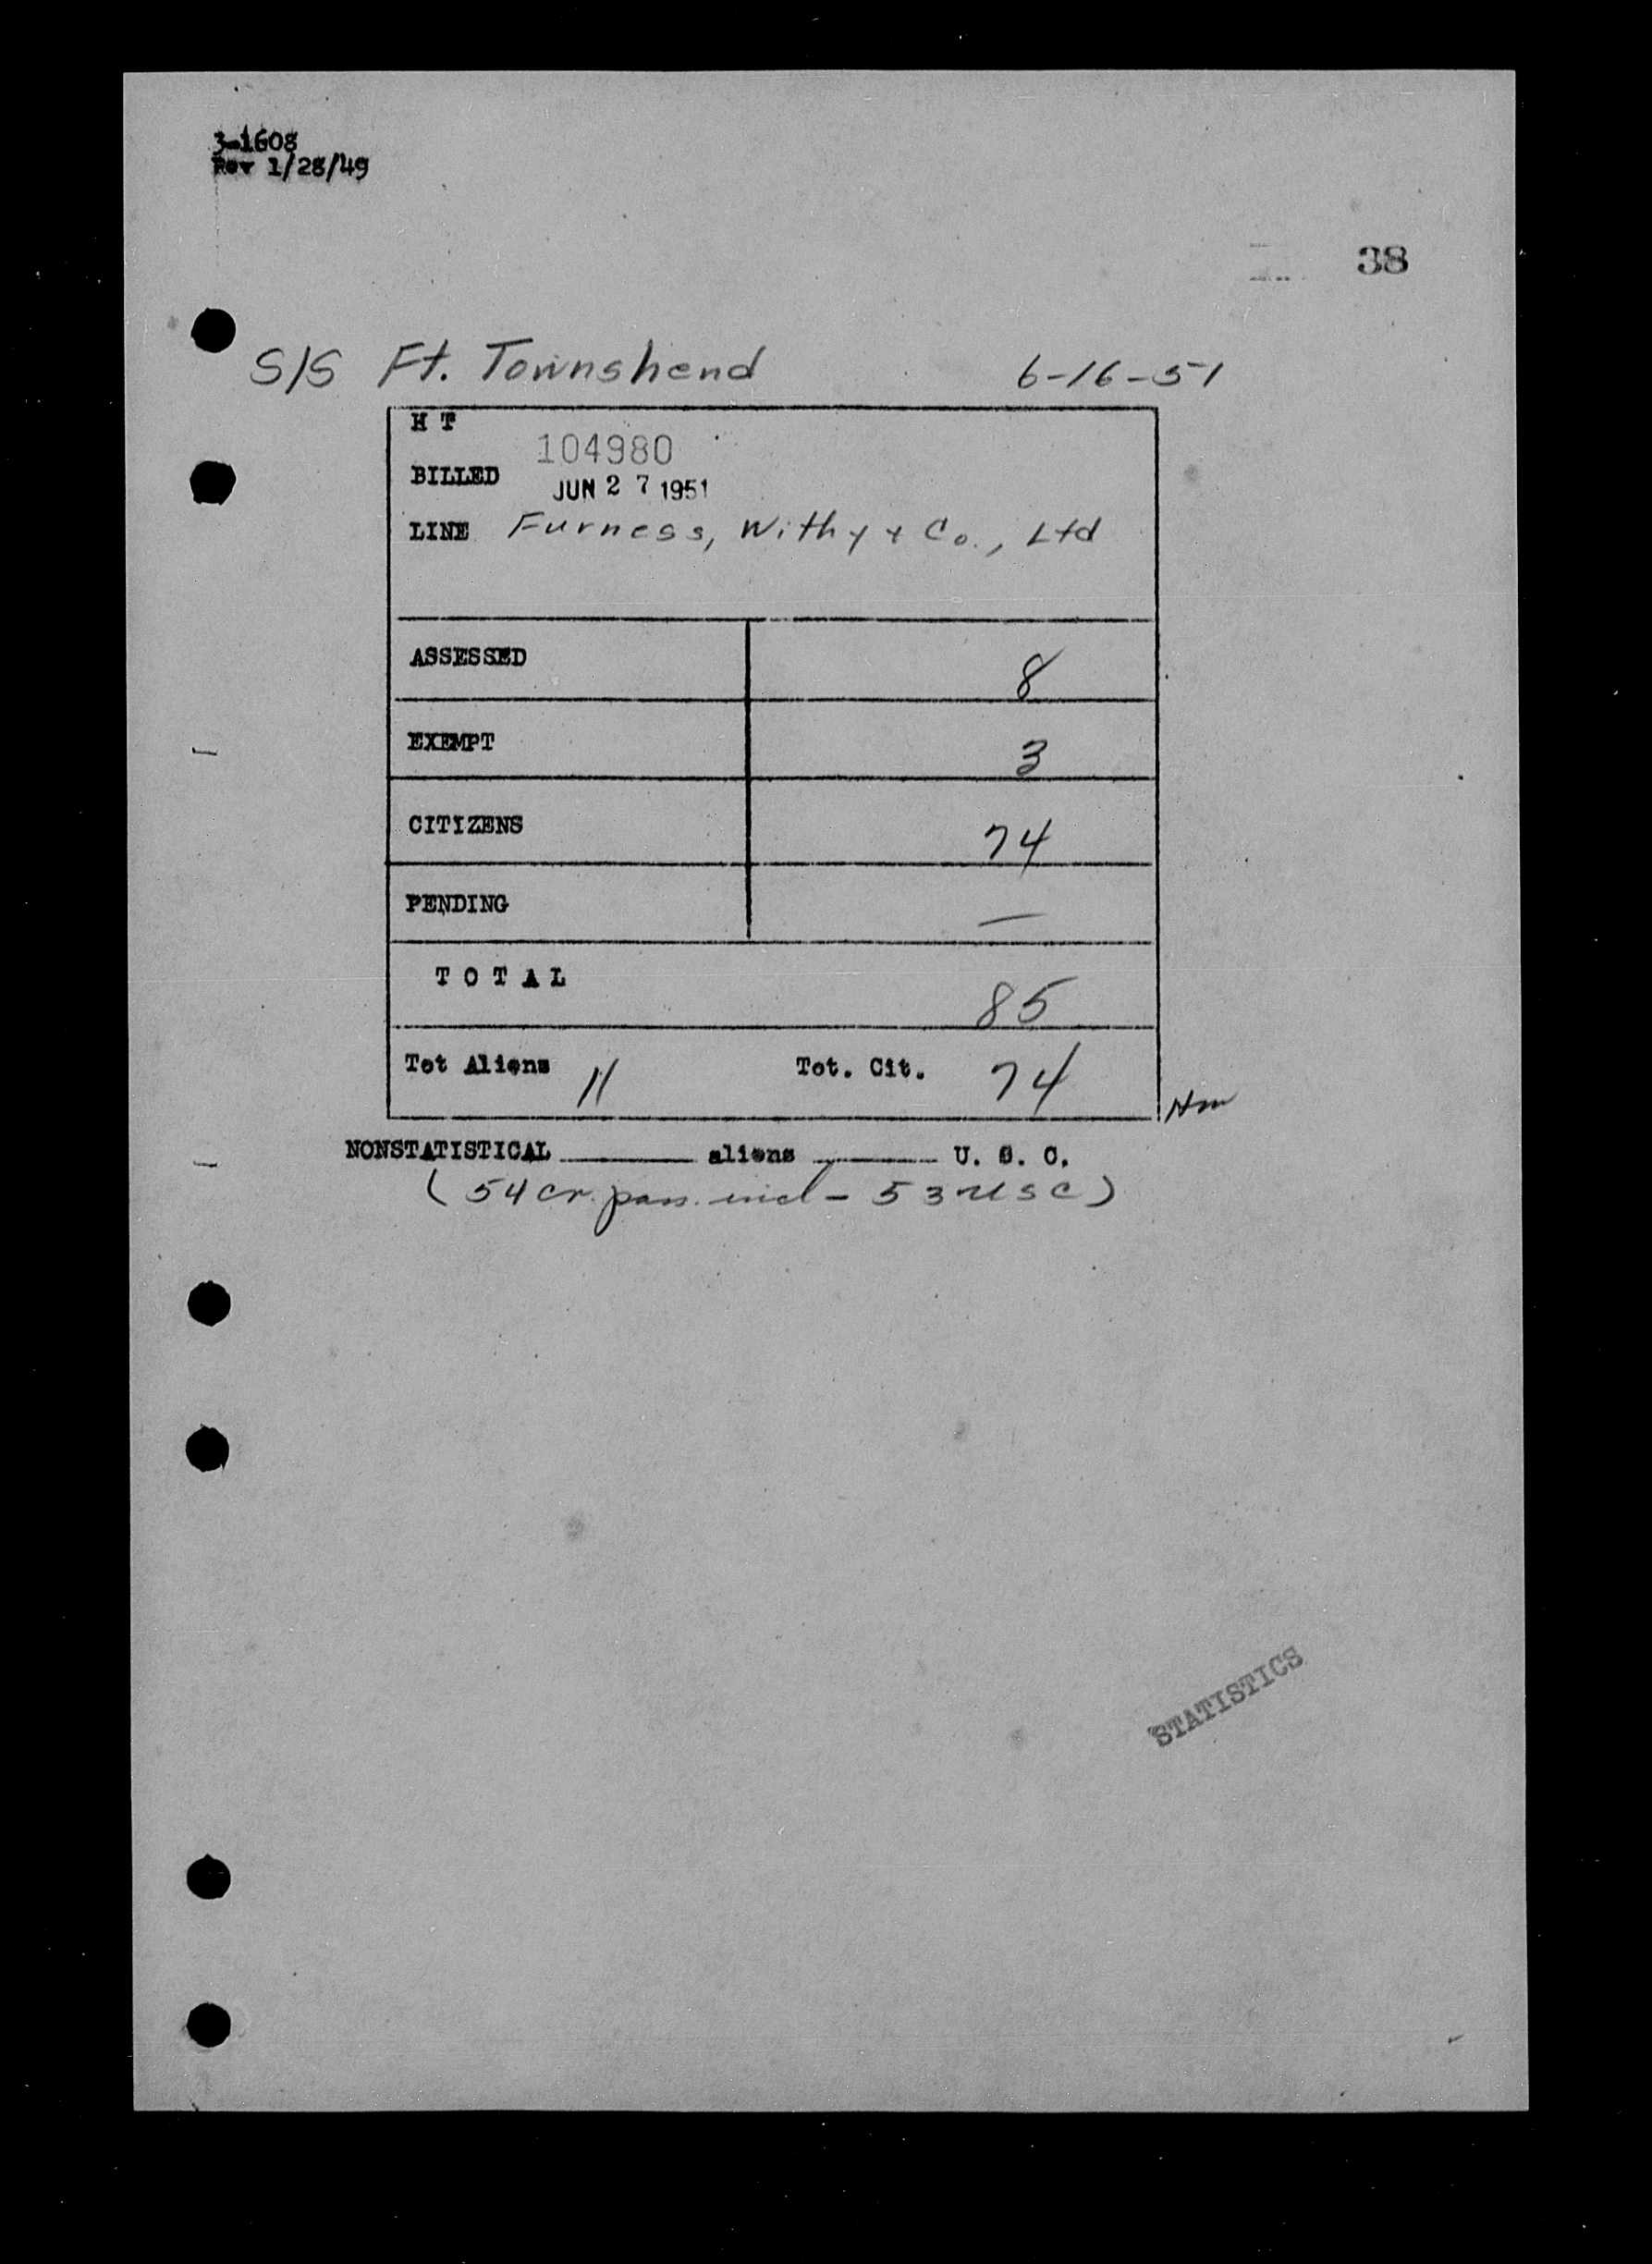 3-1608
Rev 1/28/49
38
S/S Ft. Townshend 6-16-51
H T
104980
BILLED
JUN 27 1951
LINE Furness, Withy + Co., Ltd
ASSESSED 8
EXEMPT 3
CITIZENS 74
PENDING —
TOTAL 85
Tot Aliens 11 Tot. Cit. 74
NONSTATISTICAL ______ aliens ______ U. S. C.
(54 cr. pass. incl - 53 USC)
STATISTICS